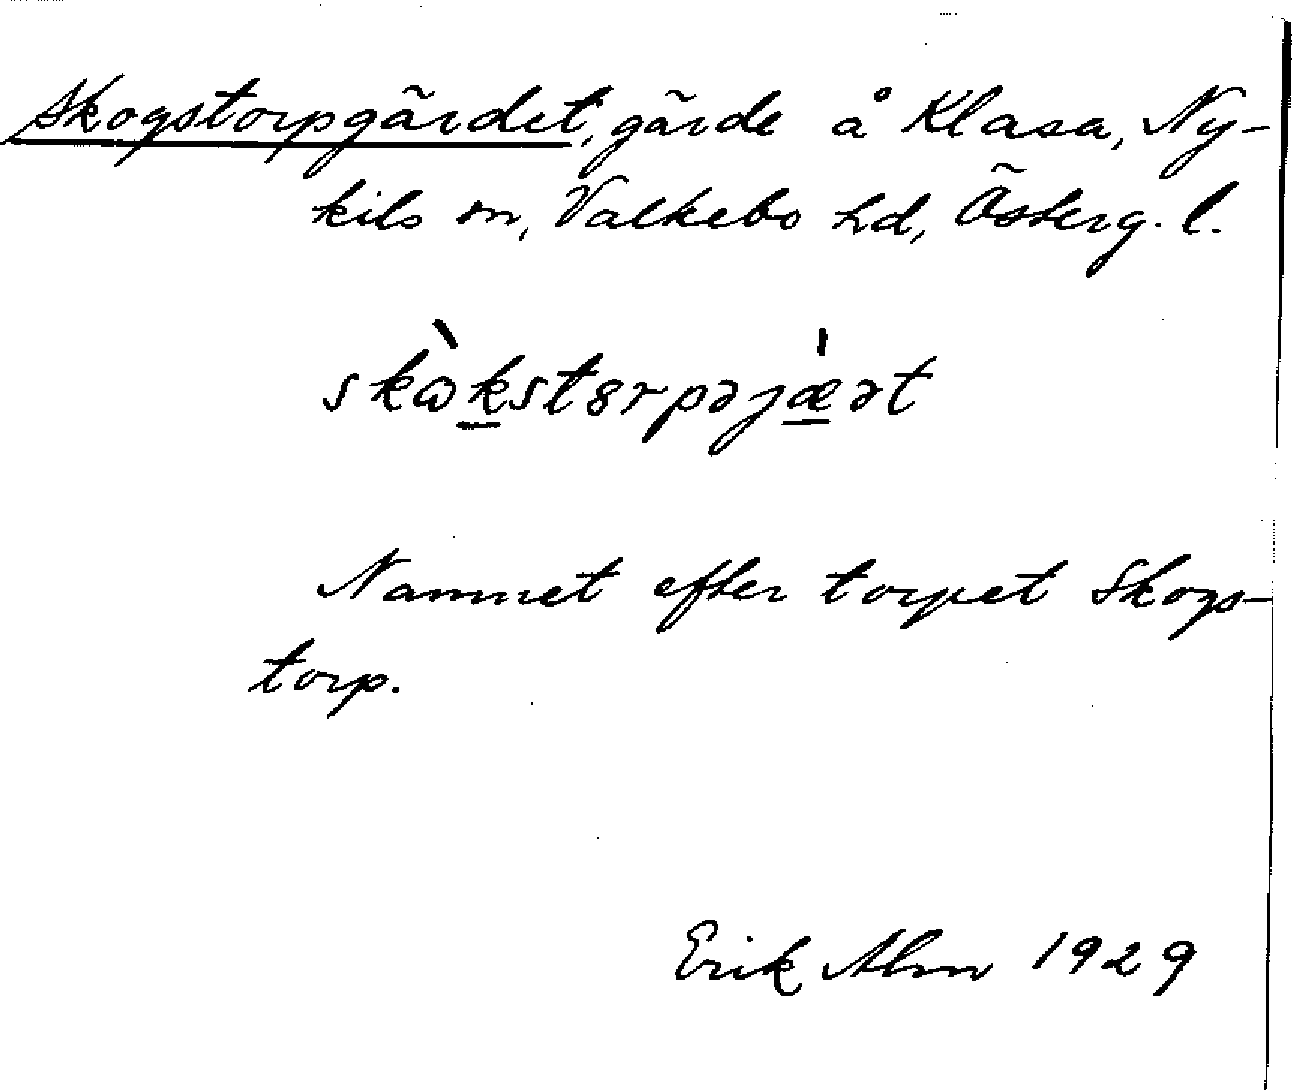 Skogstorpgärdet, gärde å Klasa, Ny-
kils sn, Valkebo hd, Österg. l.
skɷ̀ks̱tȣrpəjæ̱̍ət
Namnet efter torpet Skogs-
torp.
Erik Alm 1929